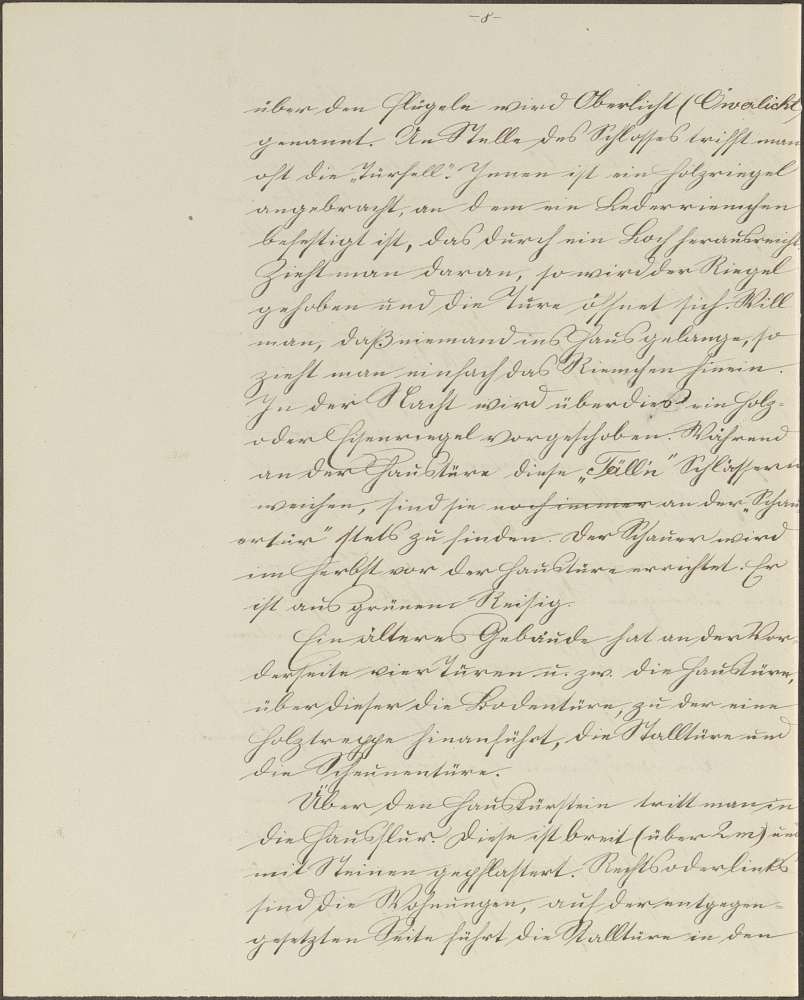 -8-
über den Flügeln wird Oberlicht (Ówalicht)
genannt. An Stelle des Schlosses trifft man
oft die „Türfell“. Innen ist ein Holzriegel
angebracht, an dem ein Lederriemchen
befestigt ist, das durch ein Loch herausreicht.
Zieht man daran, so wird der Riegel
gehoben und die Türe öffnet sich. Will
man, daß niemand ins Haus gelange, so
zieht man einfach das Riemchen hinein.
In der Nacht wird überdies ein Holz-
oder Eisenriegel vorgeschoben. Während
an der Haustüre diese „Fälln“ Schlössern
weichen, sind sie noch immer an der „Schau
ertür“ stets zu finden. Der Schauer wird
im Herbst vor der Haustüre errichtet. Er
ist aus grünem Reisig.
Ein älteres Gebäude hat an der Vor-
derseite vier Türen u. zw. die Haustüre,
über dieser die Bodentüre, zu der eine
Holztreppe hinanführt, die Stalltüre und
die Scheunentüre.
Über den Haustürstein tritt man in
die Hausflur. Diese ist breit (über 2 m) und
mit Steinen gepflastert. Rechts oder links
sind die Wohnungen, auf der entgegen-
gesetzten Seite führt die Stalltüre in den